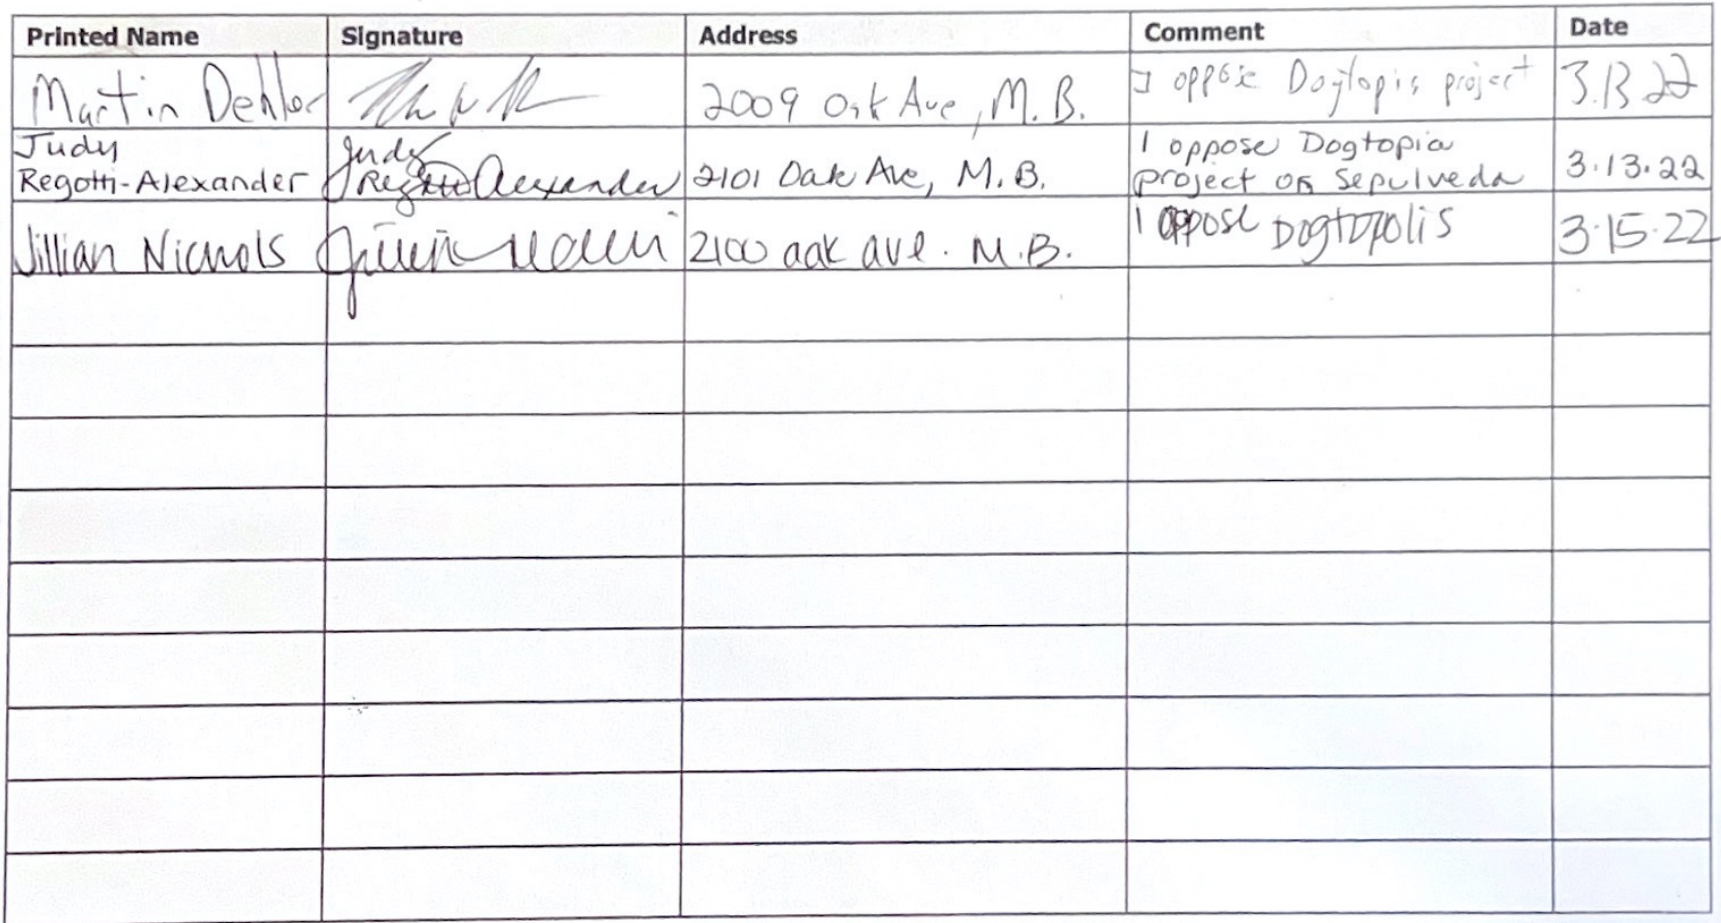 Printed Name Signature Address Comment Date
Martin Dehler 2009 Oak Ave, M.B. I oppose Dogtopis project 3.13.22
Judy Regotti-Alexander Judy Regotti Alexander 2101 Oak Ave, M.B. I oppose Dogtopia project on Sepulveda 3.13.22
Jillian Nichols 2100 oak ave. M.B. I oppose Dogtopolis 3.15.22